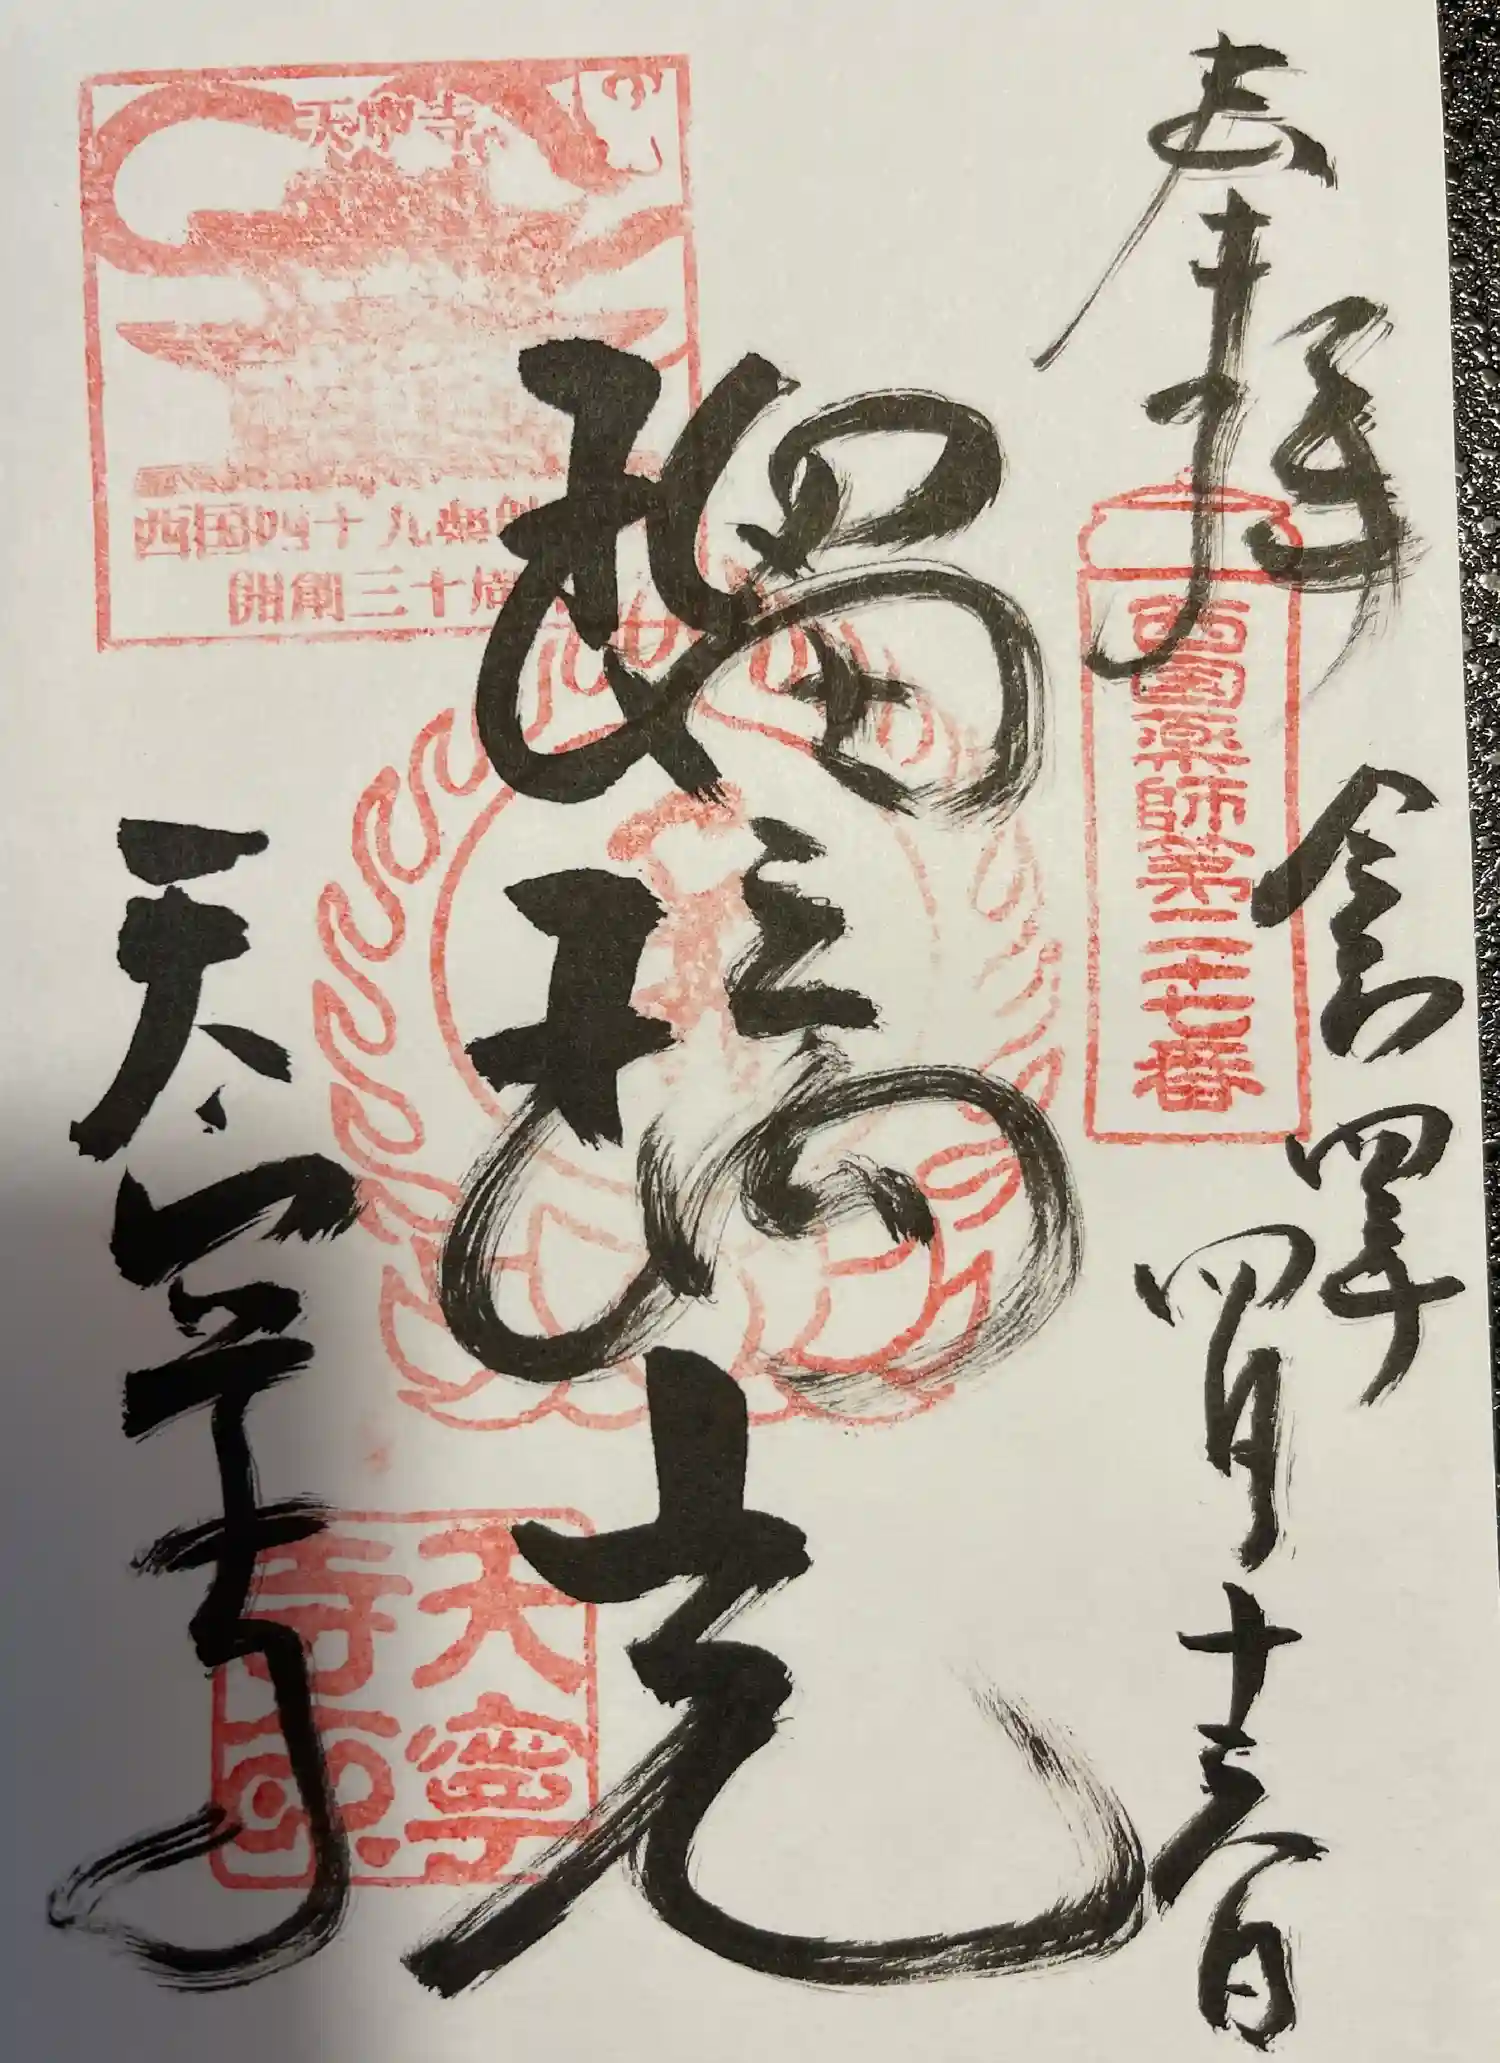 奉拝
令和四年四月十六日
西国薬師第二十七番
瑠璃光
天寧寺
天寧寺
西国四十九薬師
開創三十周
天寧寺印